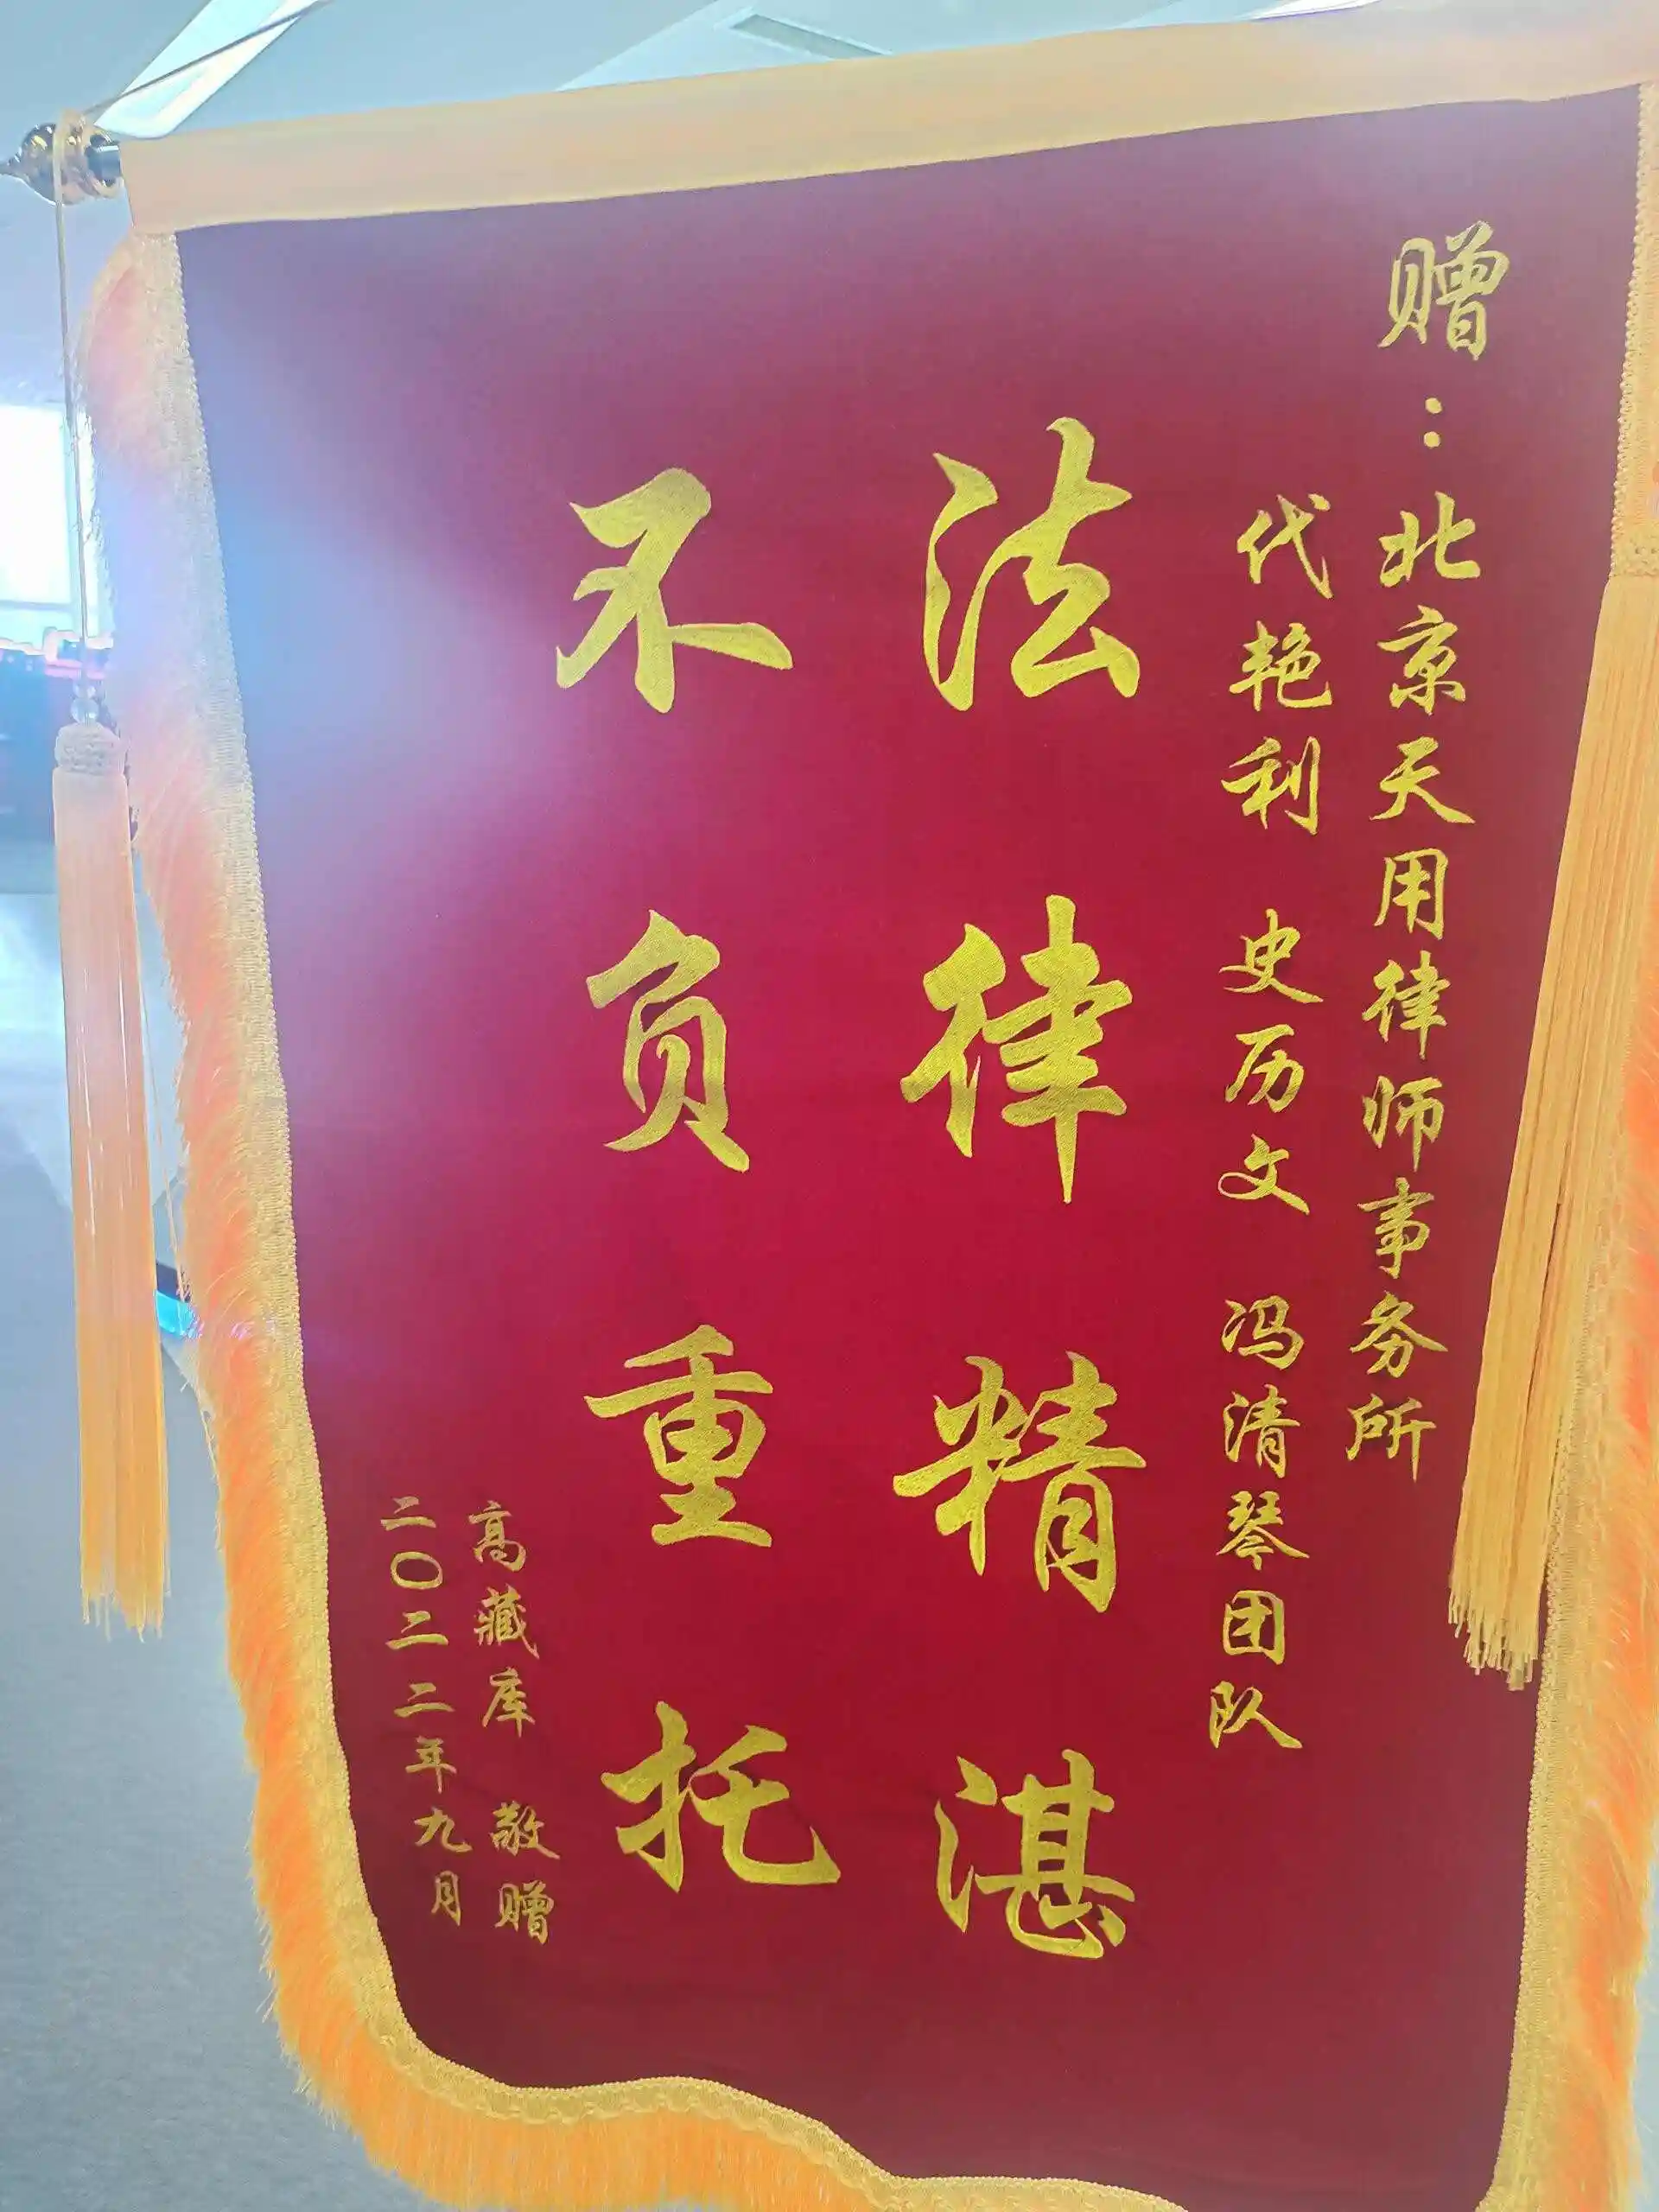 赠：北京天用律师事务所
代艳利 史历文 冯清琴团队
法律精湛
不负重托
高藏库 敬赠
二〇二二年九月